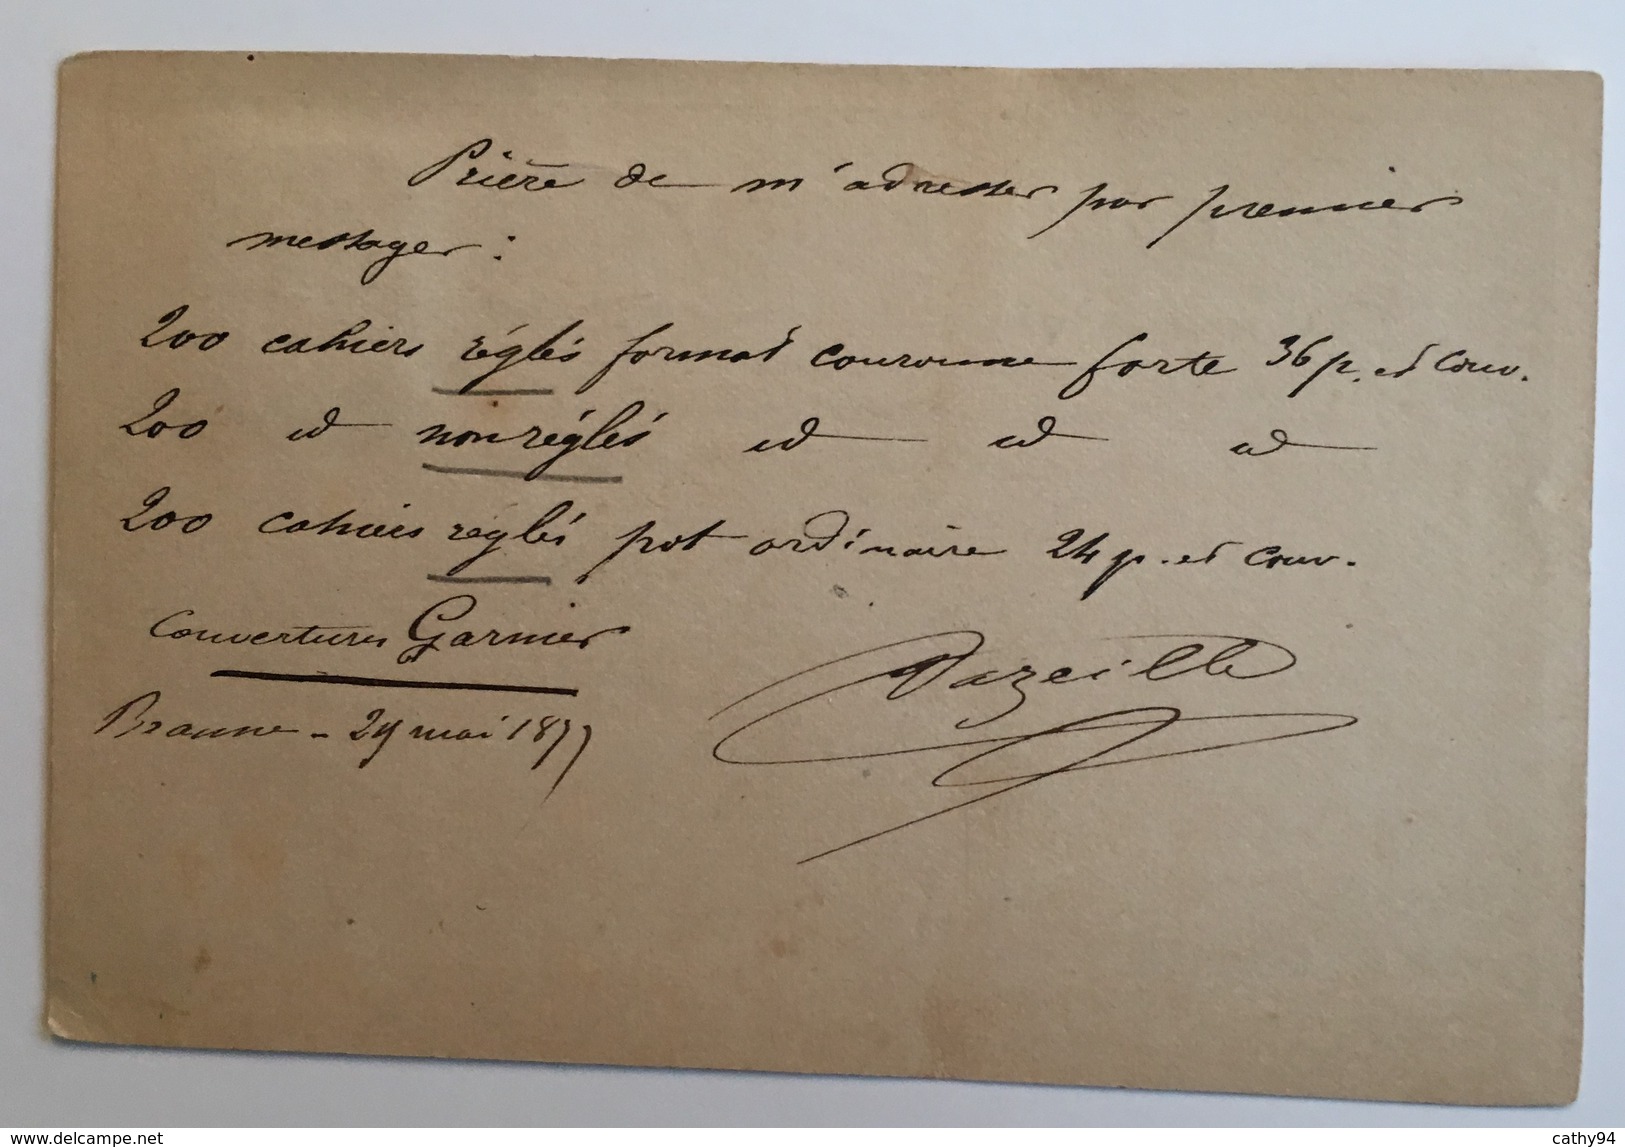 Prière de m'adresser par premier
messager :
200 cahiers réglés format couronne forte 36 p. et couv.
200 id non réglés id id id
200 cahiers réglés pot ordinaire 24 p. et couv.
Couvertures Garnier
Dazeille
mai 1877
cathy94